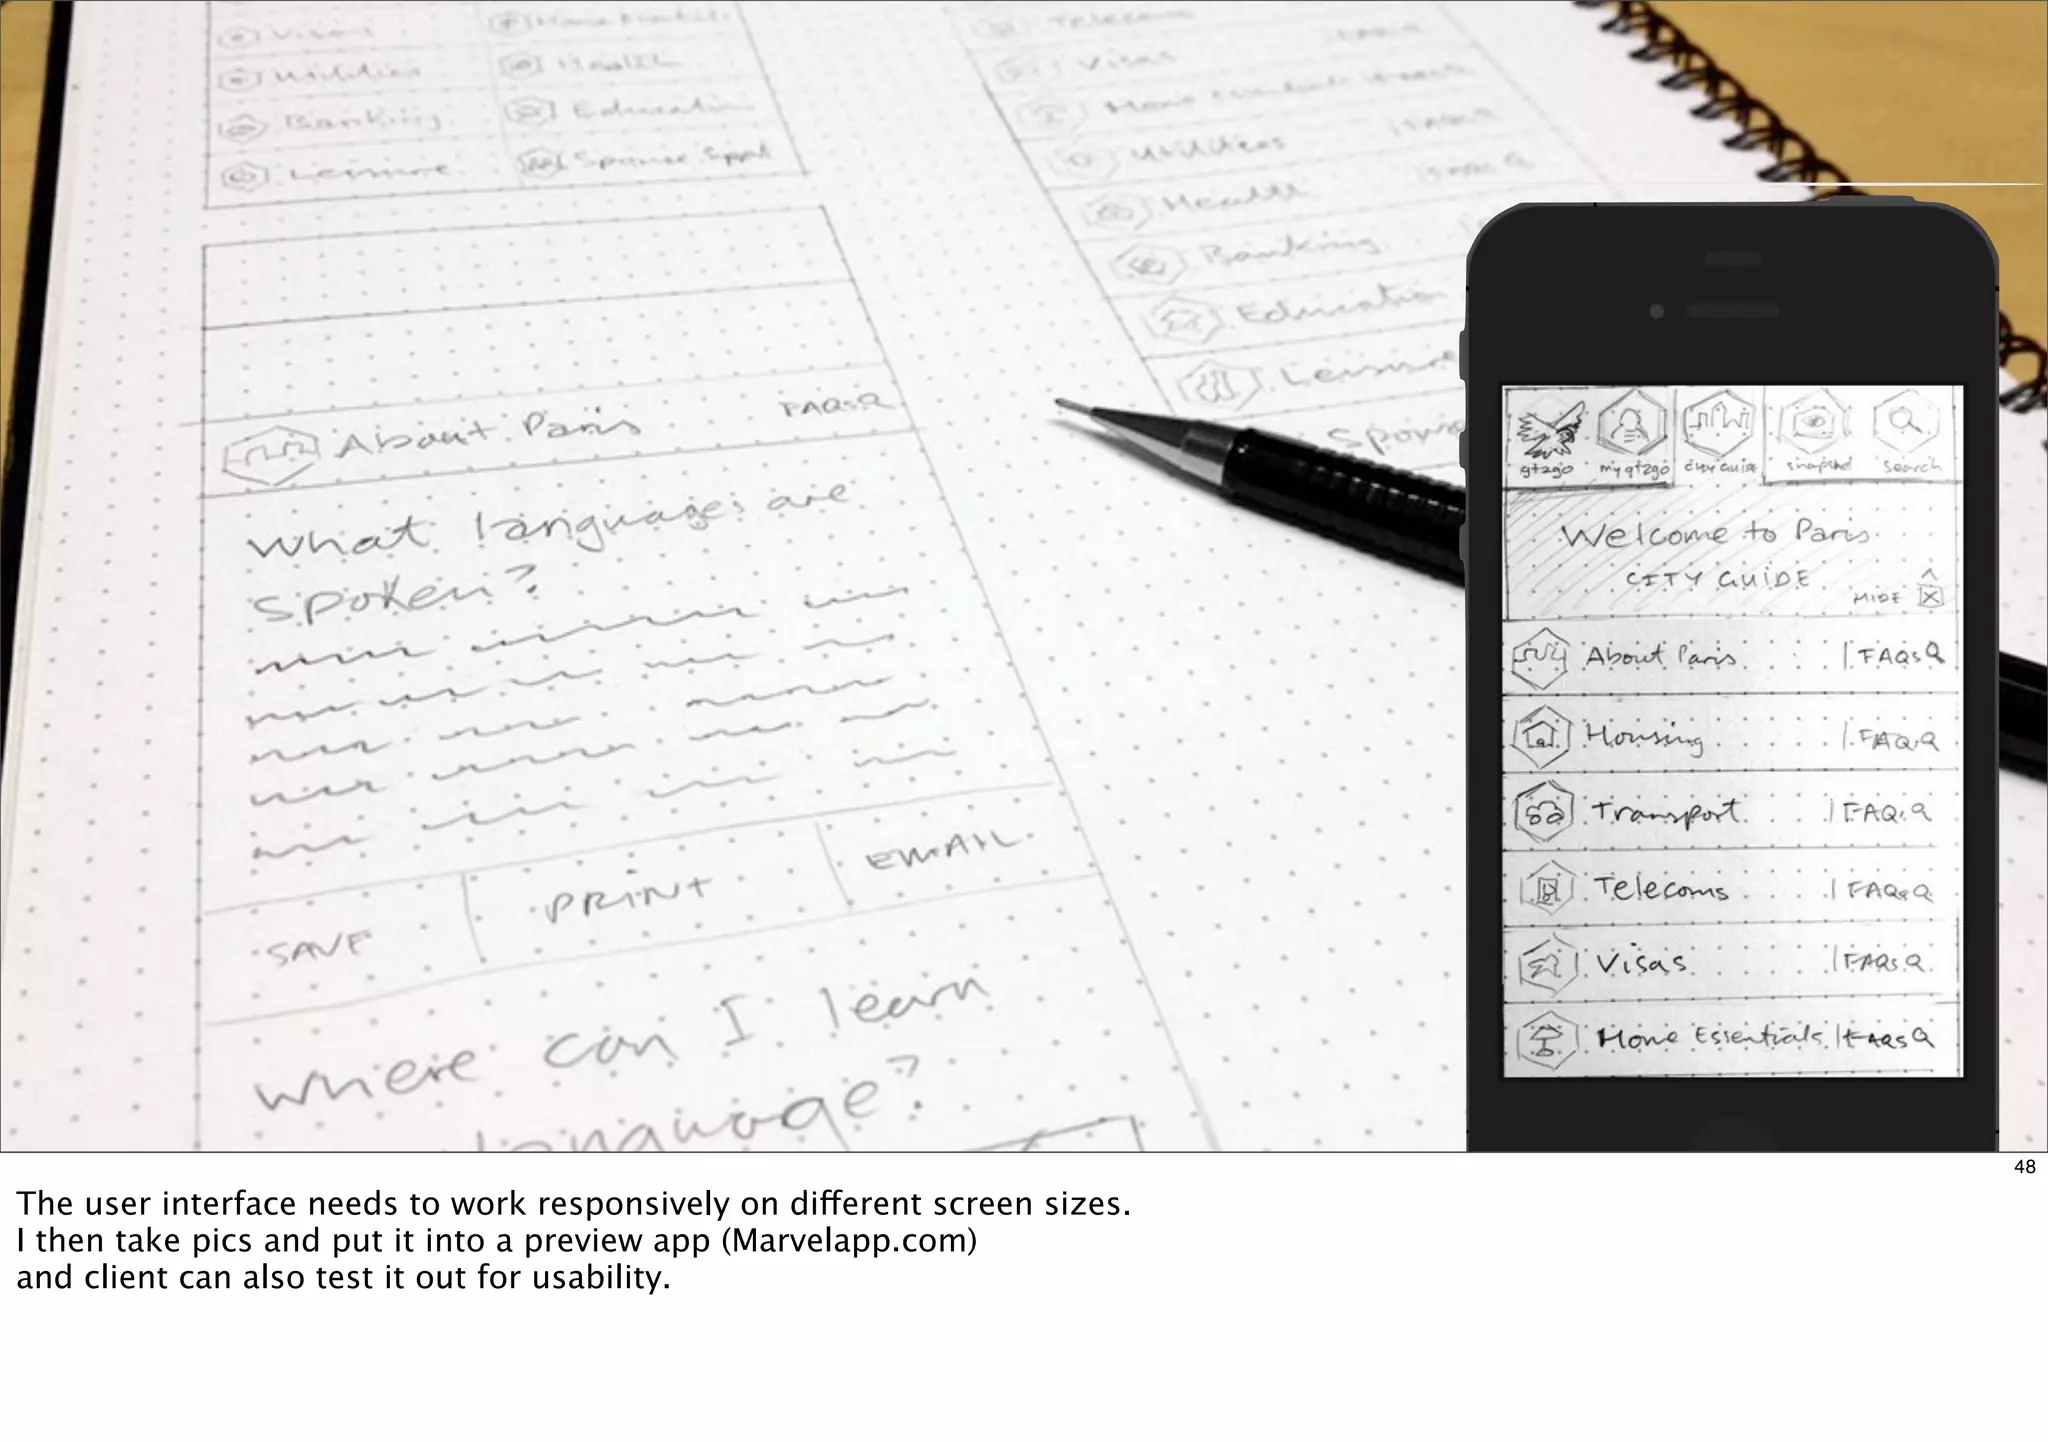 Visas
Utilities
Health
Banking
Education
Leisure
Telecom
Visas
FAQsQ
Home Essentials
Utilities
FAQsQ
Health
FAQsQ
Banking
Education
Leisure
About Paris FAQsQ
What languages are
spoken?
SAVE PRINT EMAIL
Where can I learn
language?
gt2go my gt2go city guide search
Welcome to Paris
CITY GUIDE
HIDE
About Paris | FAQsQ
Housing | FAQsQ
Transport | FAQsQ
Telecoms | FAQsQ
Visas | FAQsQ
Home Essentials | FAQsQ
48
The user interface needs to work responsively on different screen sizes.
I then take pics and put it into a preview app (Marvelapp.com)
and client can also test it out for usability.